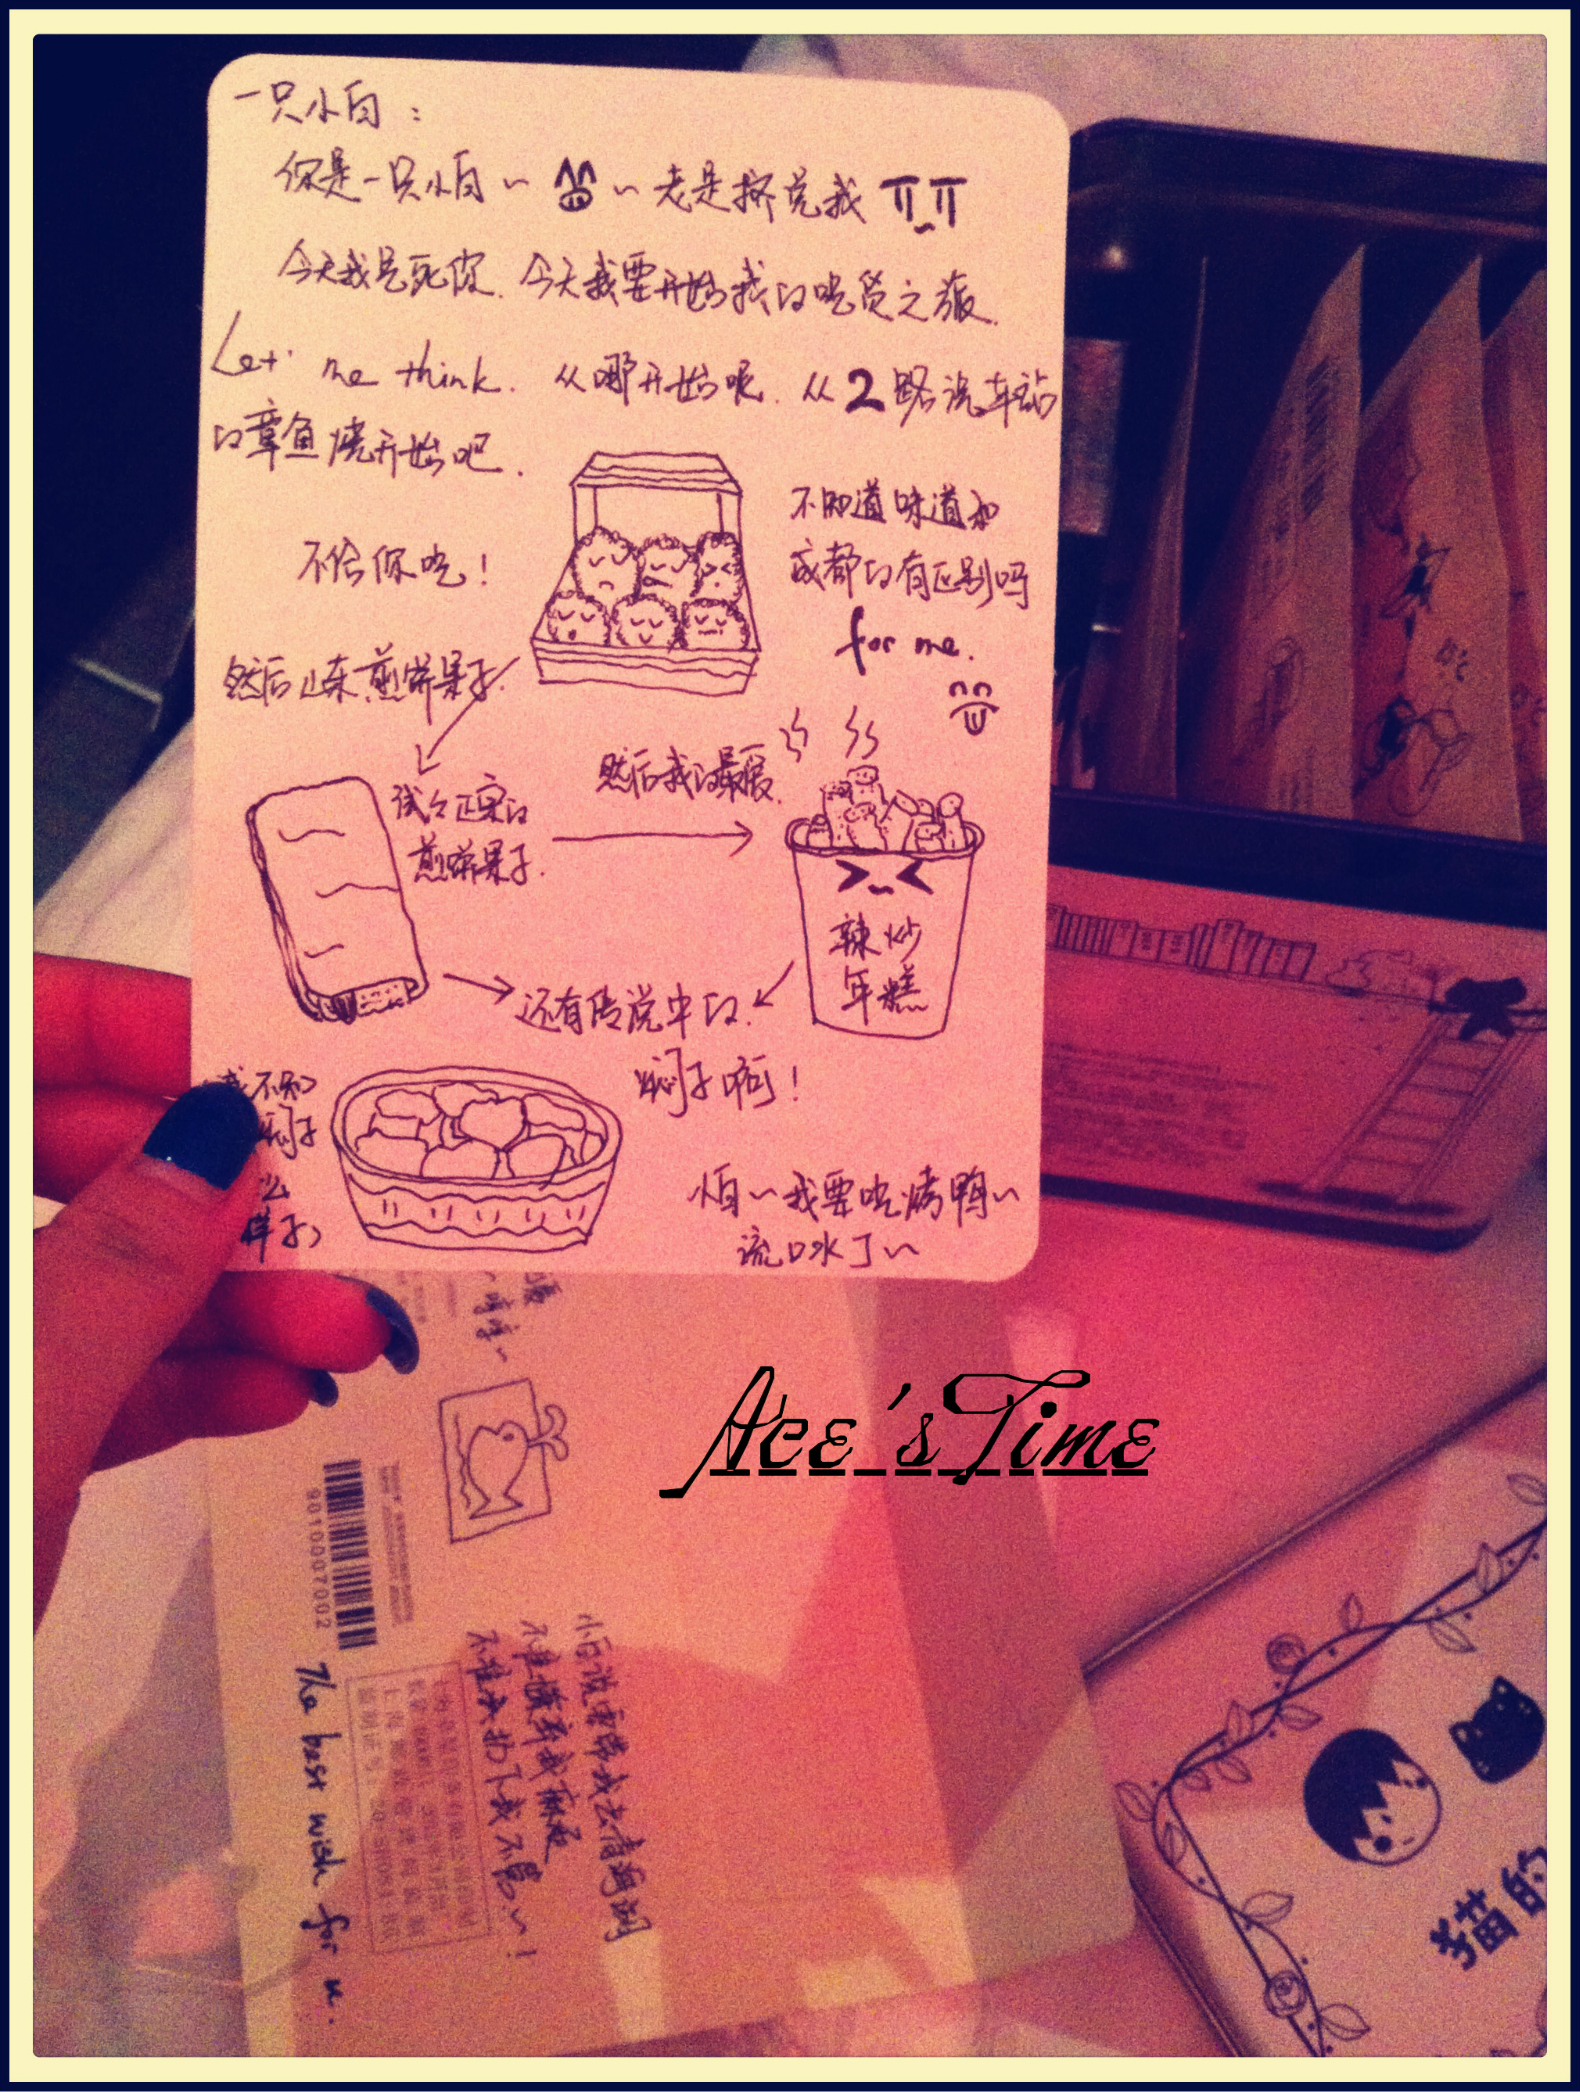 一只小白：
你是一只小白~ ~老是挤兑我
今天我是死你.今天我要开始我的吃货之旅.
Let me think. 从哪开始呢. 从2路汽车站
的章鱼烧开始吧.
不给你吃！
不知道味道和
成都的有区别吗
for me.
然后山东煎饼果子.
试试正宗的
煎饼果子.
然后我的最爱.
辣炒
年糕
还有传说中的.
焖子啊！
我不知
焖子
么
样子)
怕~我要吃烤鸭~
流口水了~
Ace'sTime
9010007002
The best wish for u.
小白说要带我去青海湖
不准嫌弃我麻烦
不准
猫的